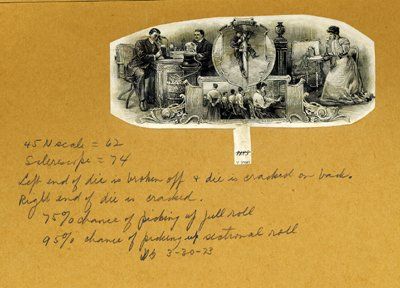 V 39195
45 N scale = 62
Scleroscope = 74
Left end of die is broken off & die is cracked on back.
Right end of die is cracked.
75% chance of picking up full roll
95% chance of picking up sectional roll
3-30-73